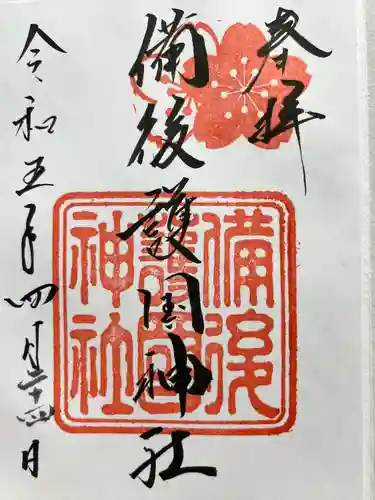 奉拝
備後護国神社
備後
護國
神社
令和五年四月二十四日